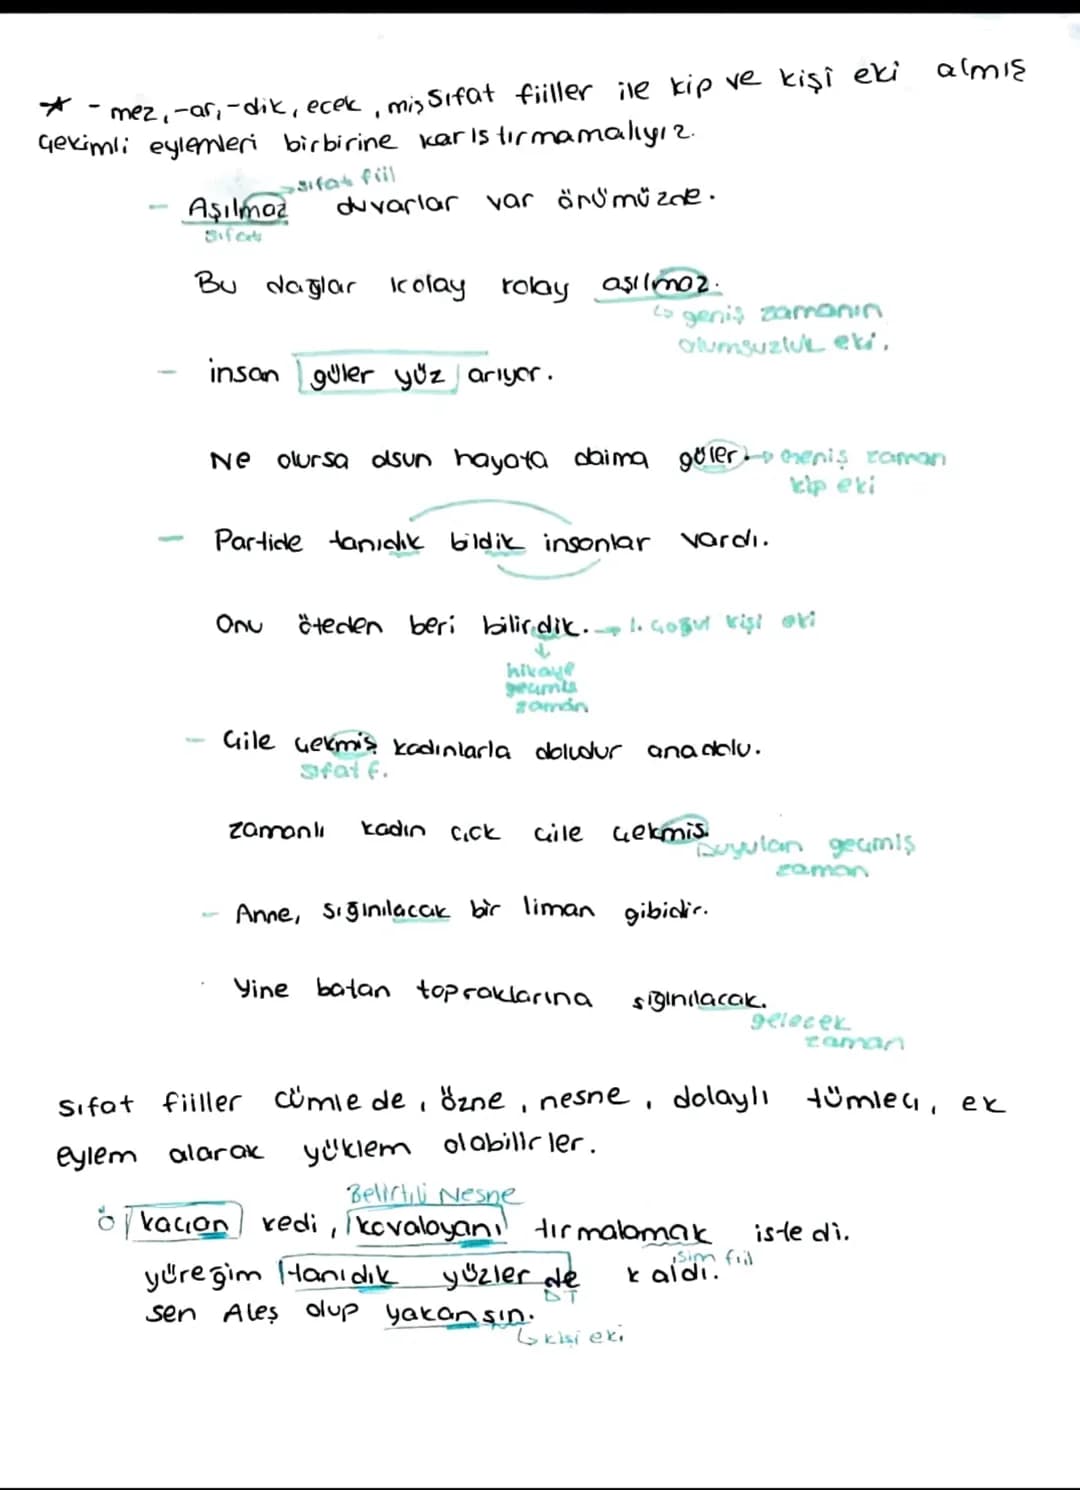 * - mez, -ar, -dik, ecek, miş Sıfat fiiller ile kip ve kişi eki almış
çekimli eylemleri birbirine karıstırmamalıyız.
→ sıfat fiil
- Aşılmaz duvarlar var önümüzde.
Sıfat
Bu dağlar kolay kolay aşılmaz.
↳ geniş zamanın
olumsuzluk eki.
- insan güler yüz arıyor.
Ne olursa olsun hayata daima güler. → Geniş zaman
kip eki
- Partide tanıdık bildik insanlar vardı.
Onu öteden beri bilirdik. → 1. çoğul kişi eki
↓
hikaye
geçmiş
zaman
- Çile çekmiş kadınlarla doludur anadolu.
sıfat f.
zamanlı kadın çok çile çekmiş.
Duyulan geçmiş
zaman
- Anne, sığınılacak bir liman gibidir.
Yine batan topraklarına sığınılacak.
gelecek
zaman
Sıfat fiiller cümlede, özne, nesne, dolaylı tümleci, ek
eylem alarak yüklem olabilirler.
Belirtili Nesne
Ö/ kaçan kedi, kovalayanı tırmalamak istedi.
isim fiil
yüreğim tanıdık yüzlerde kaldı.
DT
sen Ateş olup yakansın.
↳ kişi eki